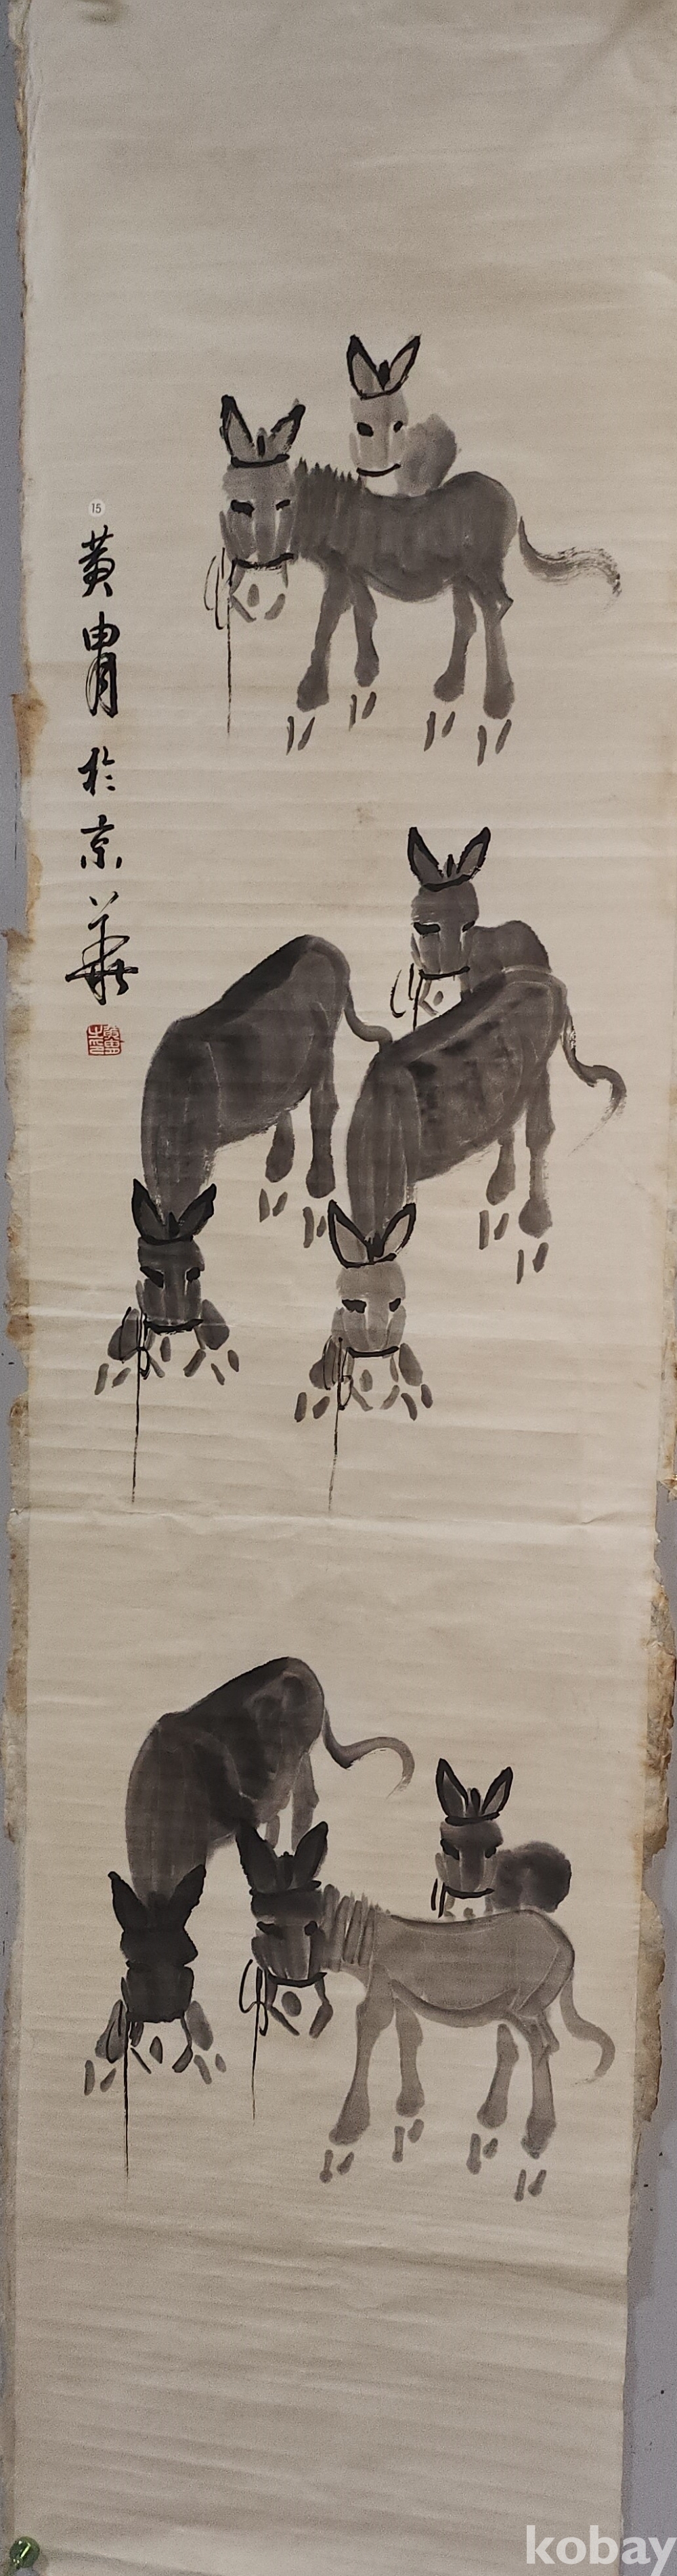 15
黄胄於京華
kobay